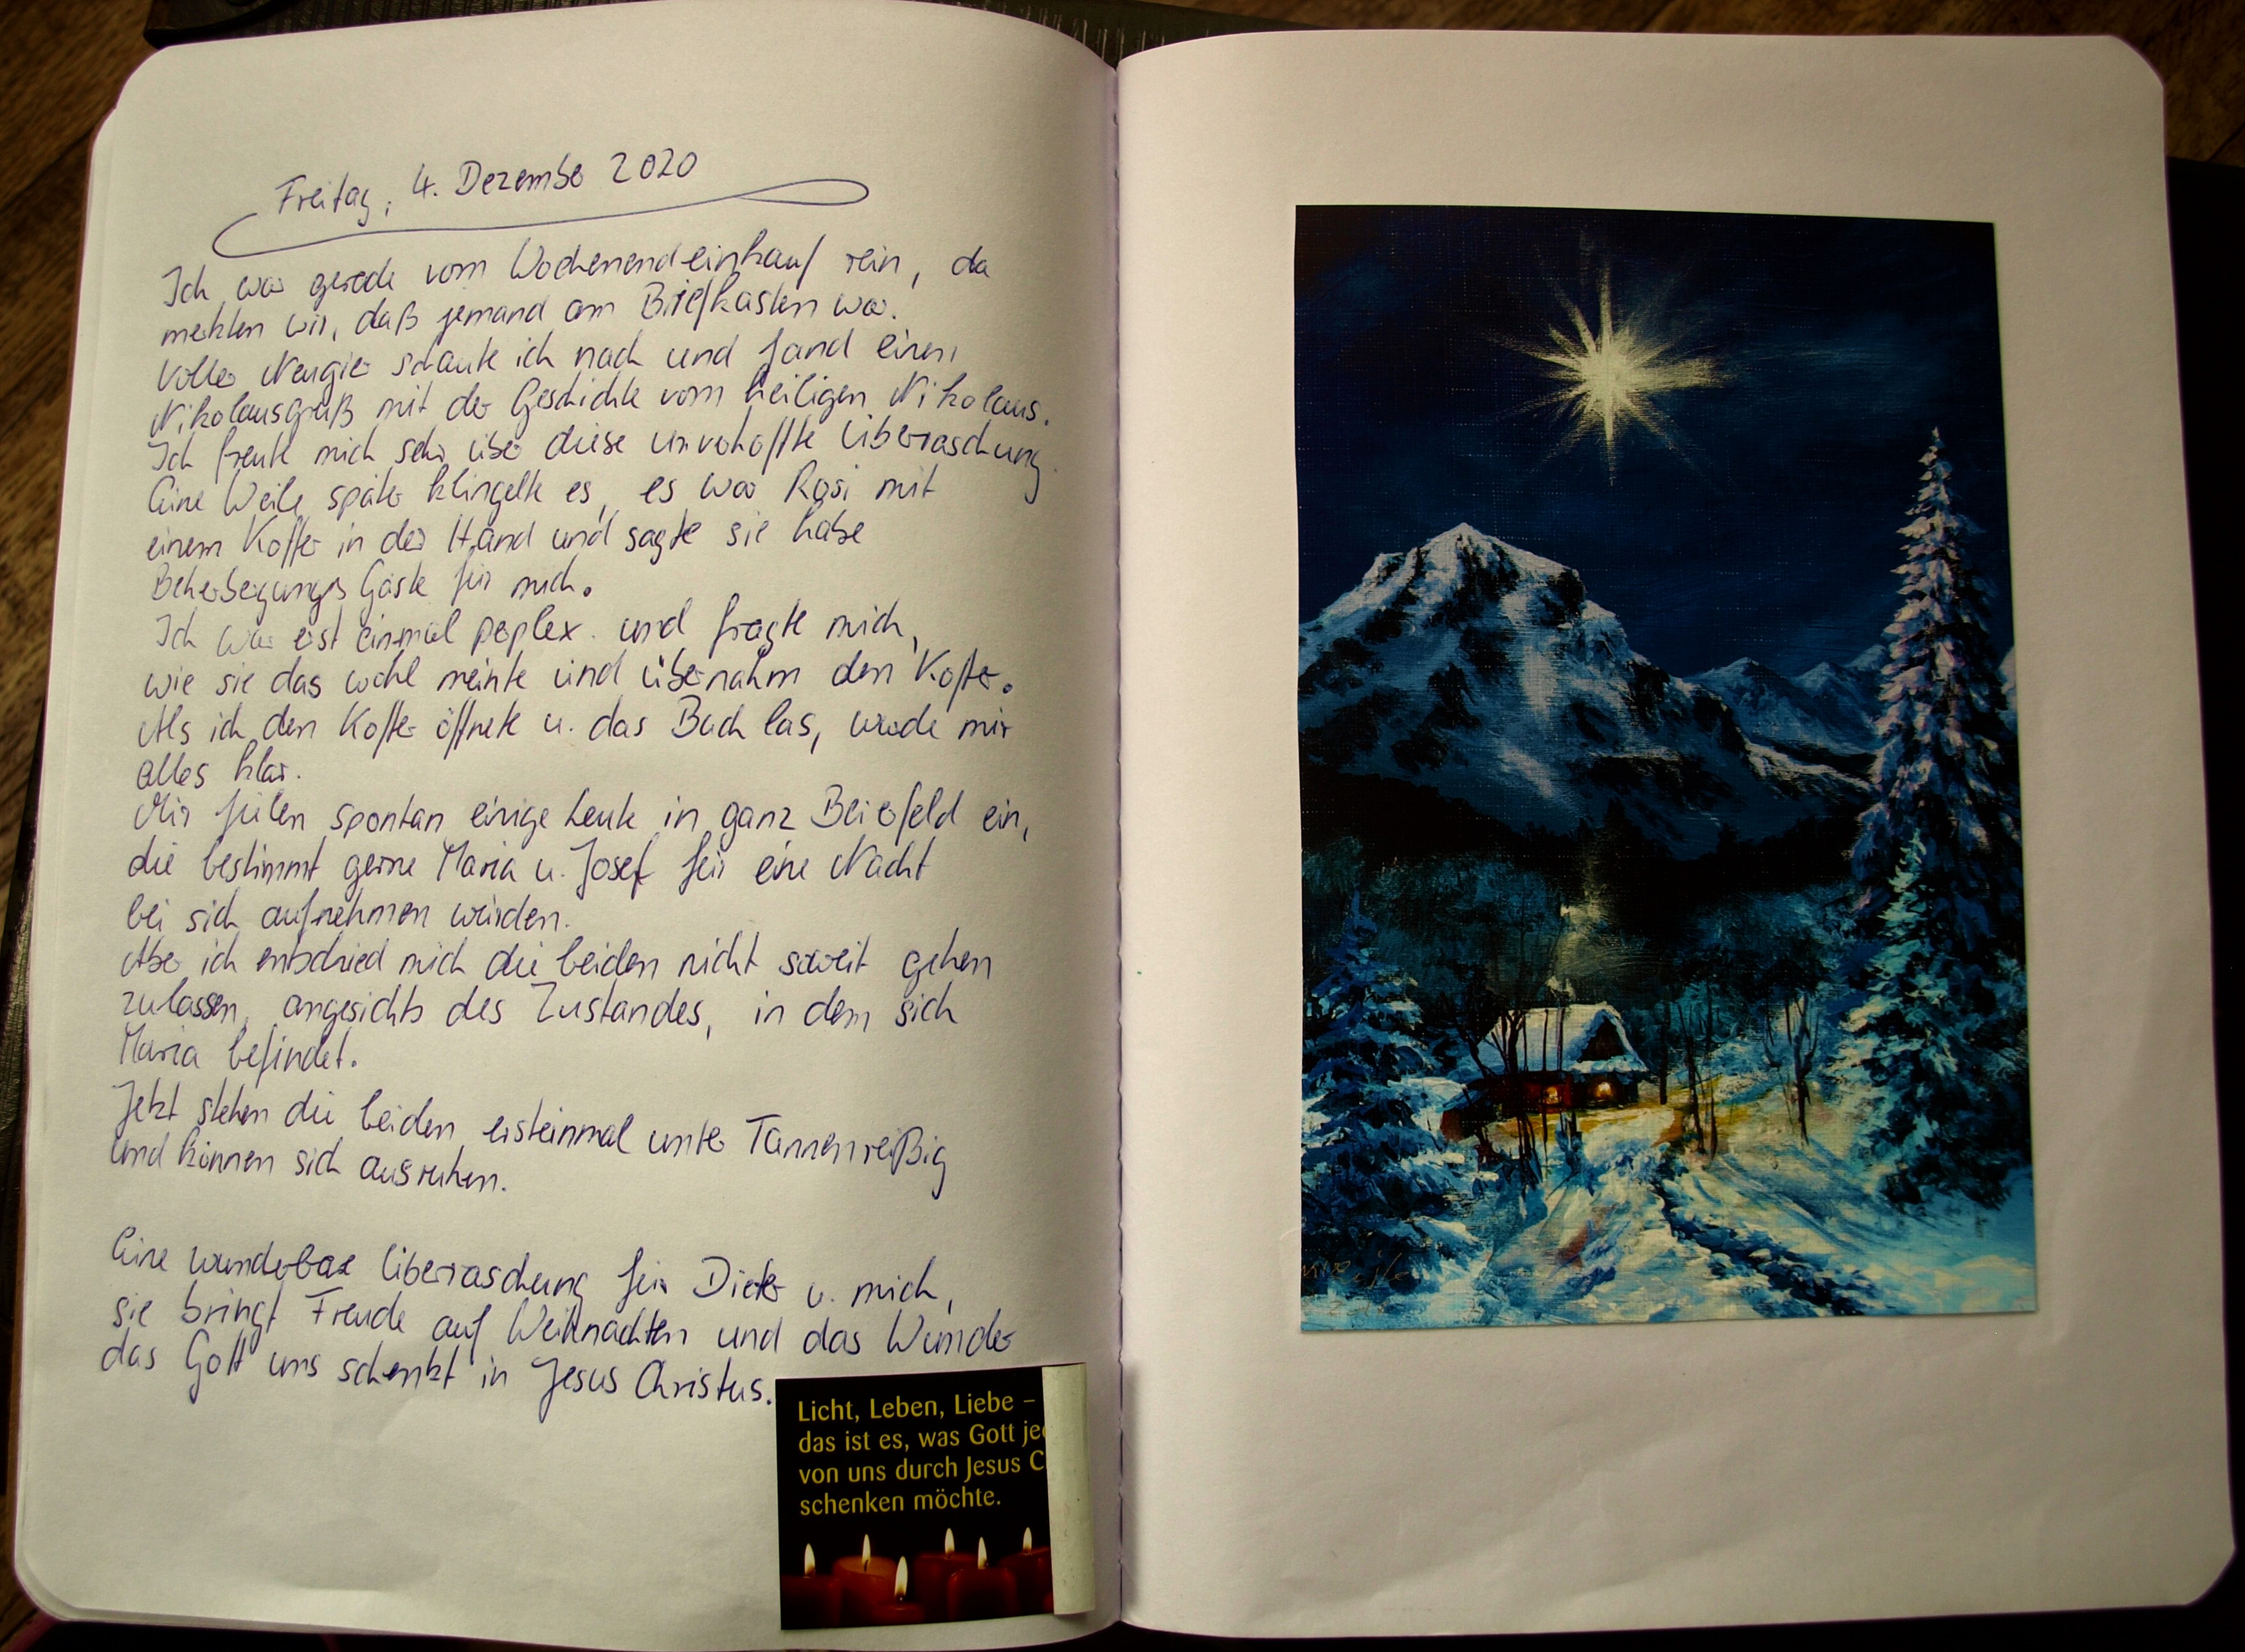 Freitag, 4. Dezember 2020
Ich war gerade vom Wochenendeinkauf rein, da
merkten wir, daß jemand am Briefkasten war.
Voller Neugier schaute ich nach und fand einen
Nikolausgruß mit der Geschichte vom heiligen Nikolaus.
Ich freute mich sehr über diese unverhoffte Überraschung.
Eine Weile später klingelte es, es war Rosi mit
einem Koffer in der Hand und sagte sie habe
Beherbergungs Gäste für mich.
Ich war erst einmal perplex und fragte mich,
wie sie das wohl meinte und übernahm den Koffer.
Als ich den Koffer öffnete u. das Buch las, wurde mir
alles klar.
Mir fielen spontan einige Leute in ganz Beierfeld ein,
die bestimmt gerne Maria u. Josef für eine Nacht
bei sich aufnehmen würden.
Aber ich entschied mich die beiden nicht soweit gehen
zulassen, angesichts des Zustandes, in dem sich
Maria befindet.
Jetzt stehen die beiden ersteinmal unter Tannenreißig
und können sich ausruhen.
Eine wunderbare Überraschung für Dieter u. mich,
sie bringt Freude auf Weihnachten und das Wunder
das Gott uns schenkt in Jesus Christus.
Licht, Leben, Liebe –
das ist es, was Gott je
von uns durch Jesus C
schenken möchte.